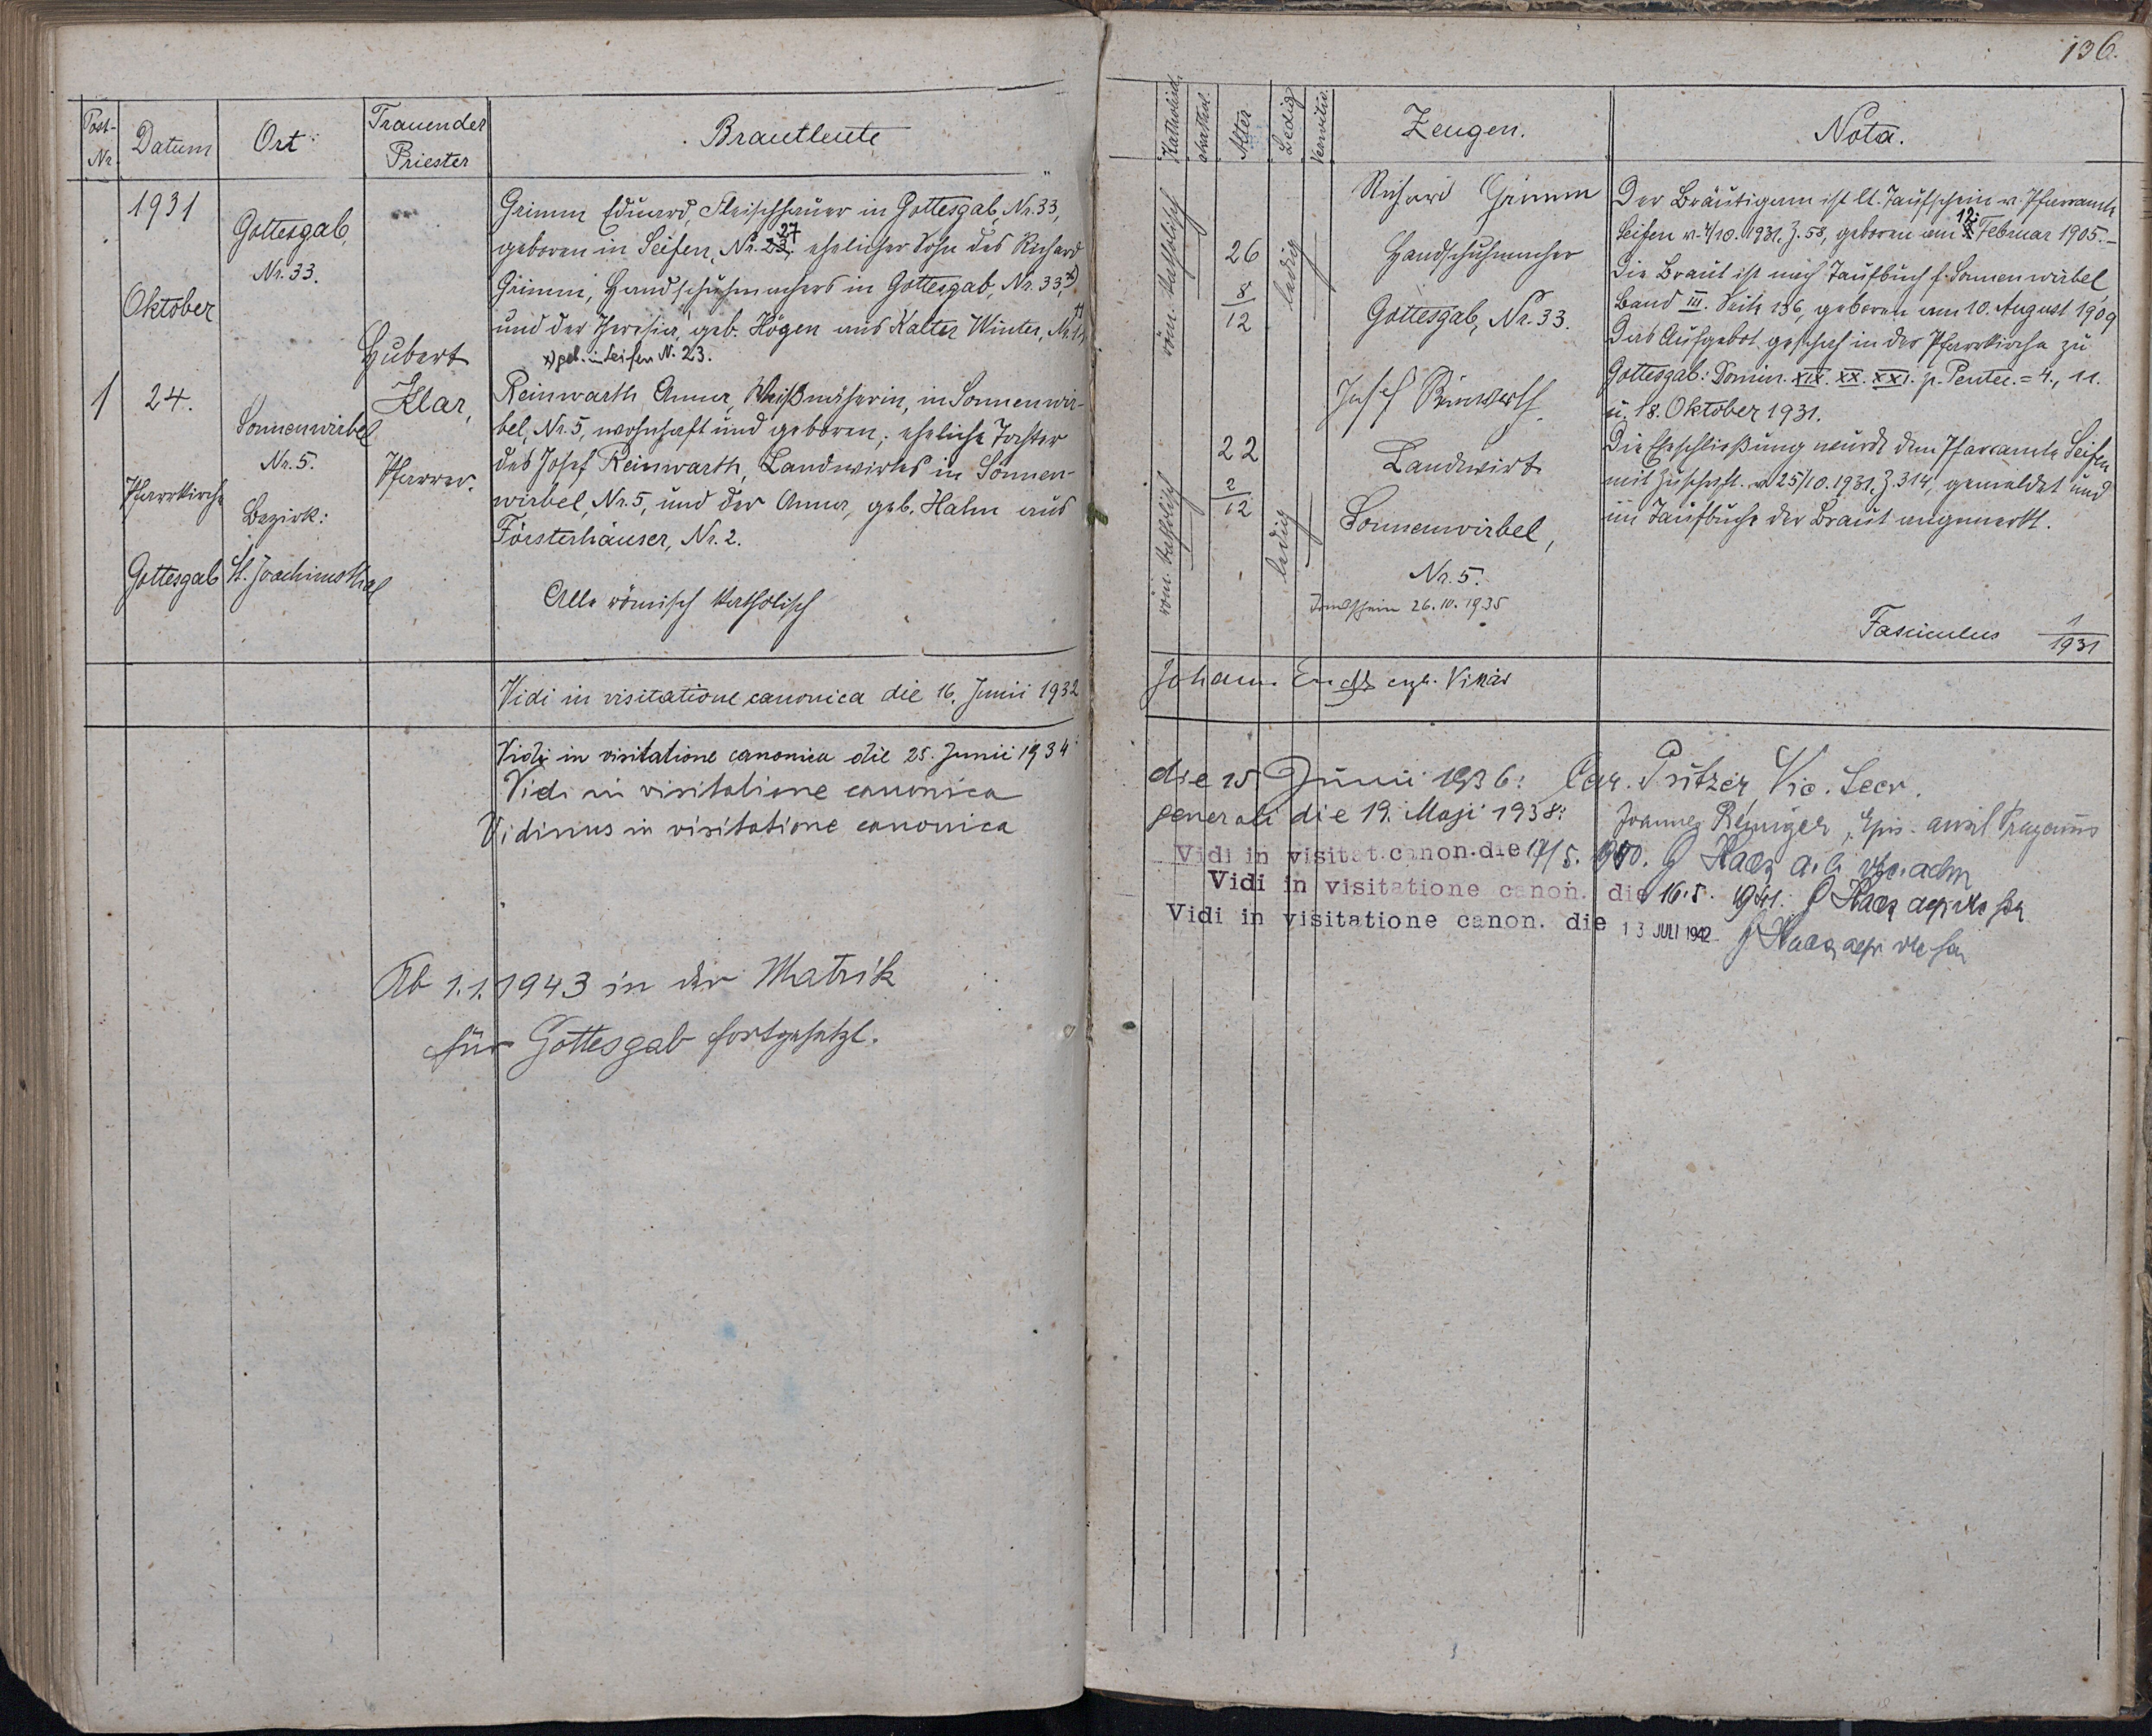 136.
Post-Nr.
Datum
Ort
Trauender Priester
Brautleute
Katholisch
akathol.
Alter
Ledig
Verwitw.
Zeugen.
Nota.
1931
Oktober
1
24.
Pfarrkirche
Gottesgab
Gottesgab,
Nr. 33.
Sonnenwirbel
Nr. 5.
Bezirk:
St. Joachimsthal
Hubert
Klar,
Pfarrer.
Grimm Eduard, Fleischhauer in Gottesgab, Nr. 33,
geboren in Seifen, Nr. 23, 27 ehelicher Sohn des Richard
Grimm, Handschuhmachers in Gottesgab, Nr. 33, x)
und der Theresia, geb. Högen aus Kalter Winter, Nr. 11
x) geb. in Seifen N. 23.
Reinwarth Anna, Weißnäherin, in Sonnenwir-
bel, Nr. 5, wohnhaft und geboren; eheliche Tochter
des Josef Reinwarth, Landwirtes in Sonnen-
wirbel, Nr. 5, und der Anna, geb. Hahn aus
Försterhäuser, Nr. 2.
Alle römisch katholisch
röm. katholisch
26
8/12
ledig
röm. katholisch
22
2/12
ledig
Richard Grimm
Handschuhmacher
Gottesgab, Nr. 33.
Josef Reinwarth
Landwirt
Sonnenwirbel,
Nr. 5.
26. 10. 1935
Der Bräutigam ist lt. Taufschein v. Pfarramte
Seifen v. 4/10. 1931. Z. 58, geboren am 12. Februar 1905. –
Die Braut ist nach Taufbuch f. Sonnenwirbel,
Band III. Seite 136, geboren am 10. August 1909
Das Aufgebot geschah in der Pfarrkirche zu
Gottesgab: Domin. XIX. XX. XXI. p. Pentec. = 4., 11.
u. 18. Oktober 1931.
Die Eheschließung wurde dem Pfarramte Seifen
mit Zuschrift v. 25/10. 1931. Z. 314, gemeldet und
im Taufbuche der Braut angemerkt.
Fasciculus 1/1931
Vidi in visitatione canonica die 16. Junii 1932
Johann Endt Vikär
Vidi in visitatione canonica die 25. Junii 1934
Vidi in visitatione canonica die 15 Junii 1936: Car. Pützer, Vic. Secr.
Vidimus in visitatione canonica generali die 19. Maji 1938: Joannes Remiger,
Vidi in visitat. canon. die 17/5. 1940.
Vidi in visitatione canon. die 16. 5. 1941.
Vidi in visitatione canon. die 13 JULI 1942
Ab 1.1.1943 in der Matrik
für Gottesgab fortgesetzt.